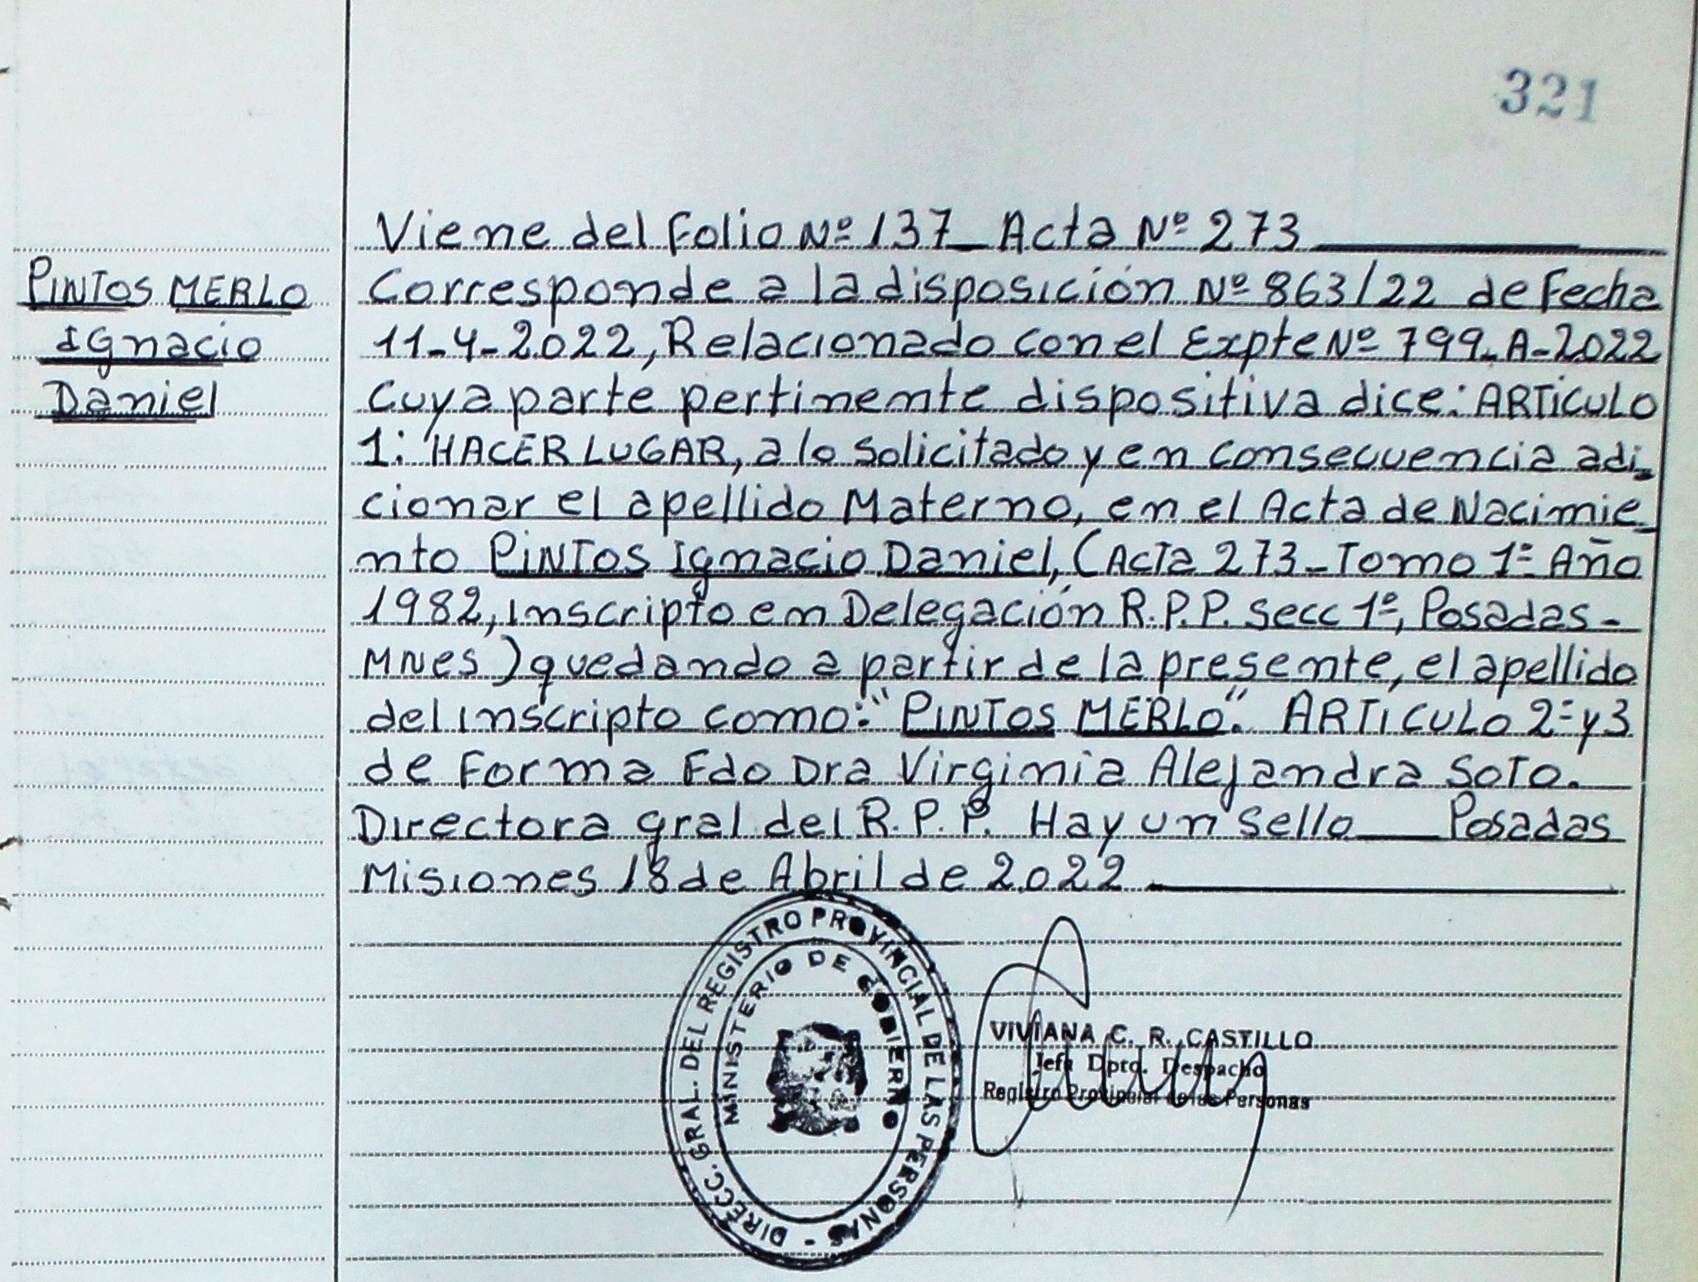 321
Viene del Folio Nº 137_ Acta Nº 273
PINTOS MERLO
Ignacio
Daniel
Corresponde a la disposición Nº 863/22 de Fecha
11-4-2022, Relacionado con el Expte Nº 799-A-2022
Cuya parte pertinente dispositiva dice: ARTICULO
1: HACER LUGAR, a lo solicitado y en consecuencia adi-
cionar el apellido Materno, en el Acta de Nacimie_
nto PINTOS Ignacio Daniel, (ACTA 273-Tomo 1º Año
1982, inscripto en Delegación R.P.P. Secc 1º, Posadas-
MNES) quedando a partir de la presente, el apellido
del inscripto como: "PINTOS MERLO". ARTICULO 2º y 3
de Forma Fdo Dra Virginia Alejandra SOTO.
Directora gral del R.P.P. Hay un sello___ Posadas
Misiones 18 de Abril de 2022
DIRECC. GRAL. DEL REGISTRO PROVINCIAL DE LAS PERSONAS -
MINISTERIO DE GOBIERNO
VIVIANA C. R. CASTILLO
Jefa Dpto. Despacho
Registro Provincial de las Personas